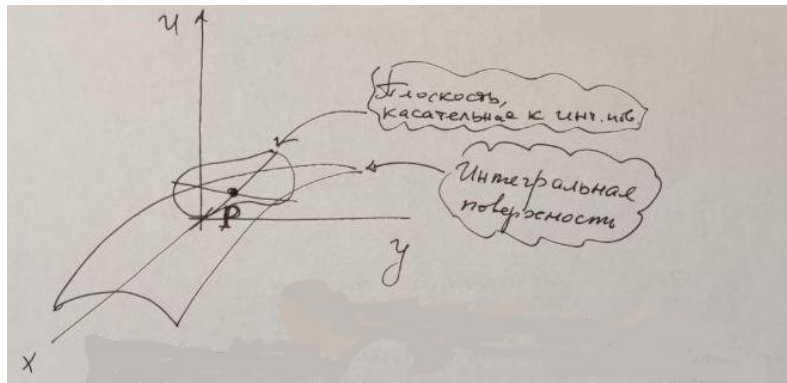 u
Плоскость,
касательная к инт. пов.
Интегральная
поверхность
P
y
x